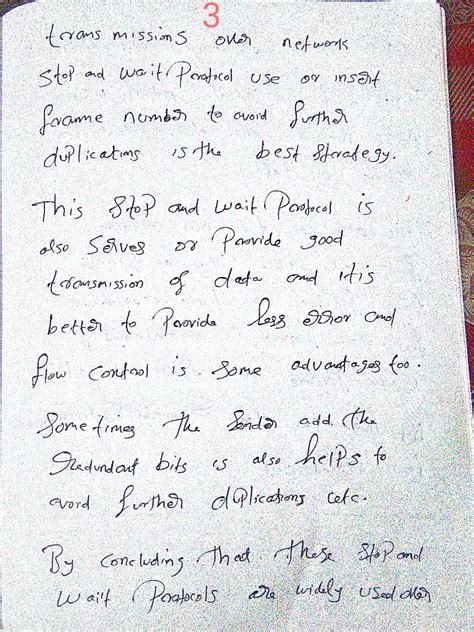 3
transmissions over network
Stop and wait Protocol use or insert
frame number to avoid further
duplications is the best strategy.
This Stop and wait Protocol is
also Serves or Provide good
transmission of data and it is
better to Provide less error and
flow control is some advantages too.
Sometimes the Sender add the
Redundant bits is also helps to
avoid further duplications cetc.
By concluding that these Stop and
wait Protocols are widely used over